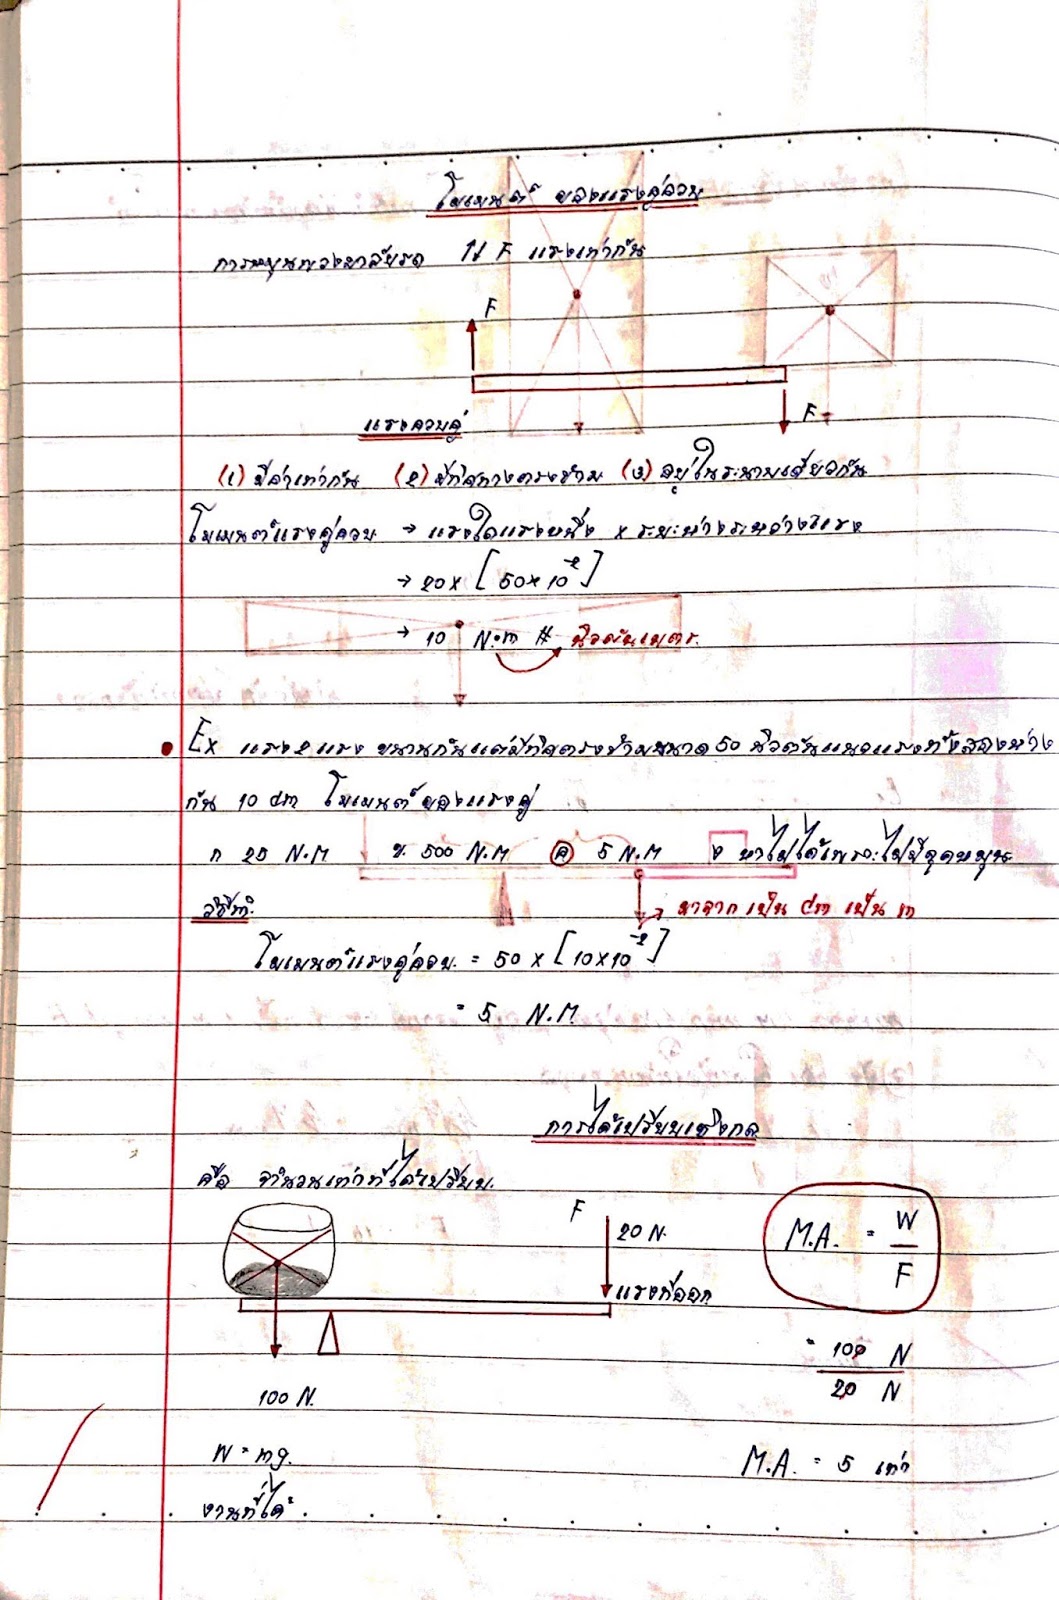 โมเมนต์ ของแรงคู่ควบ
การหมุนพวงมาลัยรถ ↑↓ F แรงเท่ากัน
F
F
แรงควบคู่
(1) มีค่าเท่ากัน (2) มีทิศทางตรงข้าม (3) อยู่ในระนาบเดียวกัน
โมเมนต์แรงคู่ควบ → แรงใดแรงหนึ่ง × ระยะห่างระหว่างแรง
→ 20 × [50×10⁻²]
→ 10 N·m # นิวตันเมตร
Ex แรง 2 แรง ขนานกันแต่มีทิศตรงข้ามขนาด 50 นิวตันแนวแรงทั้งสองห่าง
กัน 10 dm โมเมนต์ของแรงคู่
ก 25 N.M ข. 500 N.M ค 5 N.M ง หาไม่ได้เพราะไม่มีจุดหมุน
วิธีทำ
มาจาก เป็น dm เป็น m
โมเมนต์แรงคู่ควบ = 50 × [10×10⁻²]
= 5 N.M.
การได้เปรียบเชิงกล
คือ จำนวนเท่าที่ได้เปรียบ
F
20 N.
M.A. = W/F
แรงที่ออก
= 100 N / 20 N
100 N.
W = mg.
M.A. = 5 เท่า
งานที่ได้ =